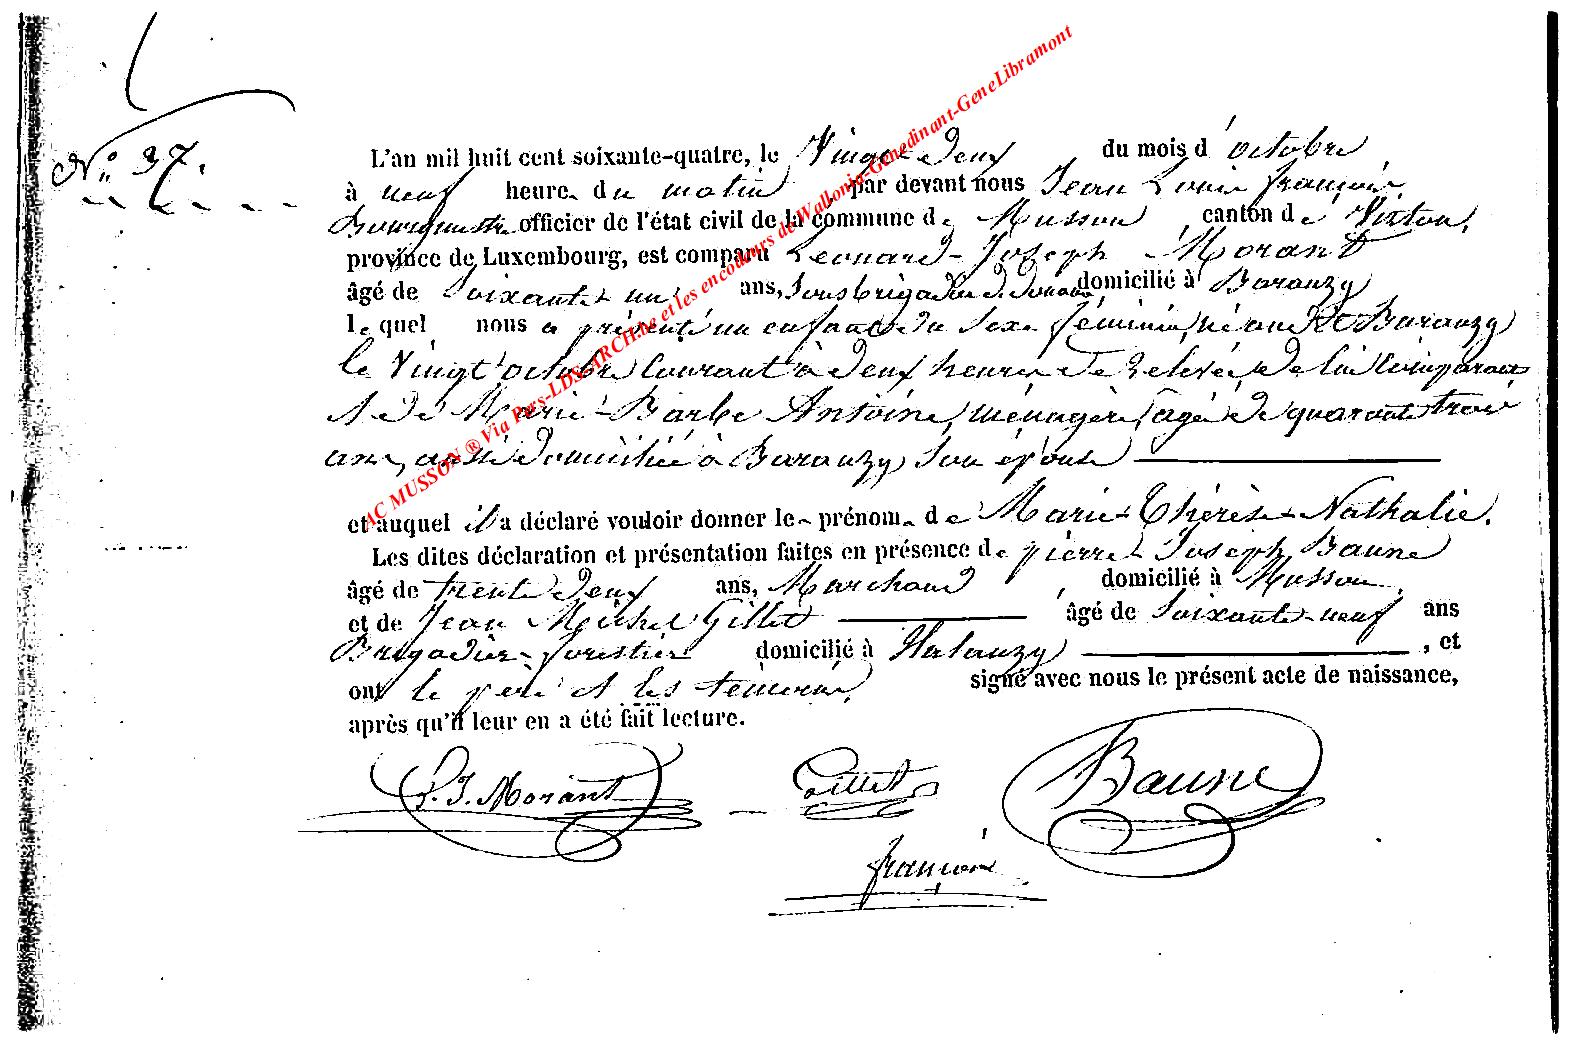 N° 37.
L'an mil huit cent soixante-quatre, le Vingt Deux du mois d'octobre
à neuf heure du matin, par devant nous Jean Louis françois,
Bourgmestre officier de l'état civil de la commune de Musson, canton de Virton,
province de Luxembourg, est comparu Léonard-Joseph Morant
âgé de Soixante-un ans, Sous brigadier d. Douane domicilié à Baranzy
le quel nous a présenté un enfant du Sexe féminin, né au Baranzy
le Vingt octobre Courant à deux heures de relevée, de lui Comparant
et de Marie-Barbe Antoine, ménagère, âgé de quarante trois
ans, aussi domiciliée à Baranzy Son épouse
et auquel il a déclaré vouloir donner le prénom de Marie-Thérèse-Nathalie.
Les dites déclaration et présentation faites en présence de pierre-Joseph Baune
âgé de trente deux ans, Marchand, domicilié à Musson,
et de Jean Michel Gillet âgé de Soixante-neuf ans
Brigadier-forestier domicilié à Halanzy, et
ont le père et les témoins, signé avec nous le présent acte de naissance,
après qu'il leur en a été fait lecture.
L. J. Morant Gillet Baune
françois
AC MUSSON ® Via Pers-LDS-ARCH.be et les encodeurs de Wallonia-Genedinant-GeneLibramont